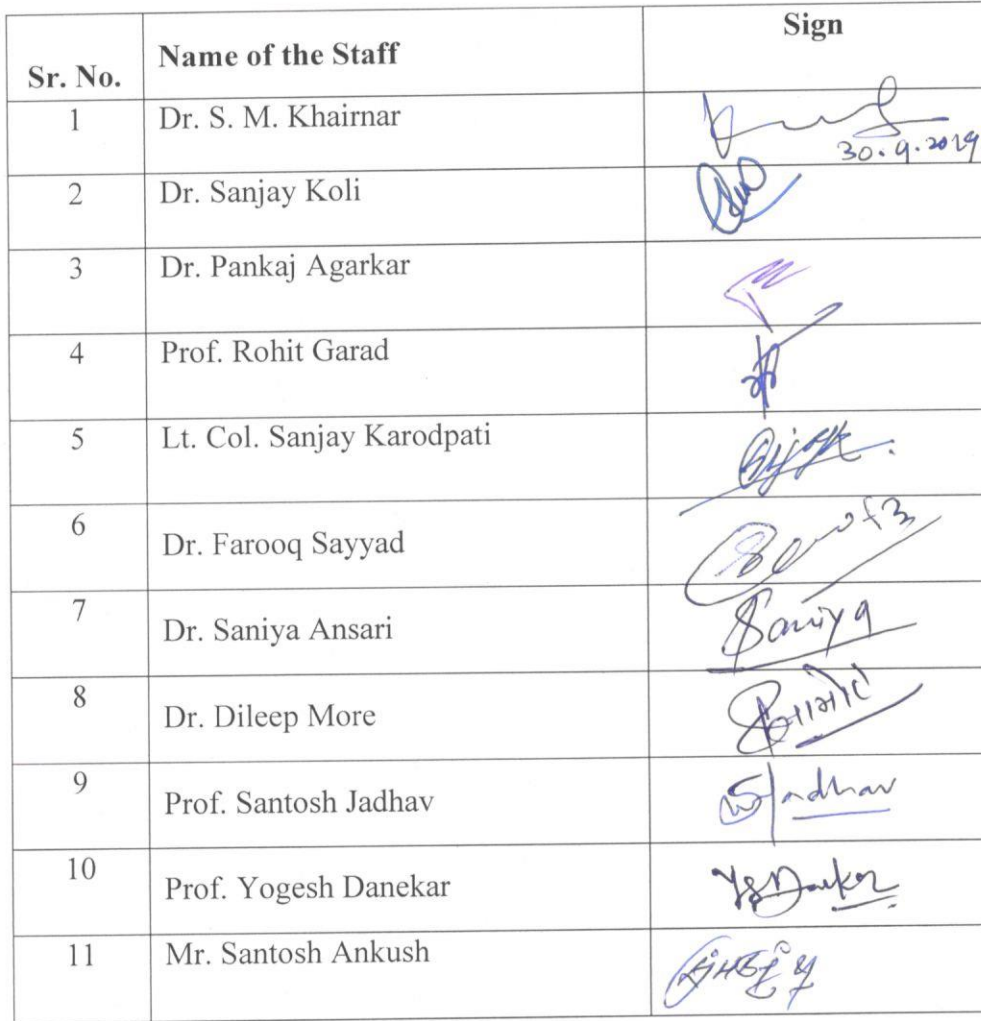 Sr. No. Name of the Staff Sign
1 Dr. S. M. Khairnar
30.9.2019
2 Dr. Sanjay Koli
3 Dr. Pankaj Agarkar
4 Prof. Rohit Garad
5 Lt. Col. Sanjay Karodpati
6 Dr. Farooq Sayyad
7 Dr. Saniya Ansari Saniya
8 Dr. Dileep More
9 Prof. Santosh Jadhav Jadhav
10 Prof. Yogesh Danekar
11 Mr. Santosh Ankush